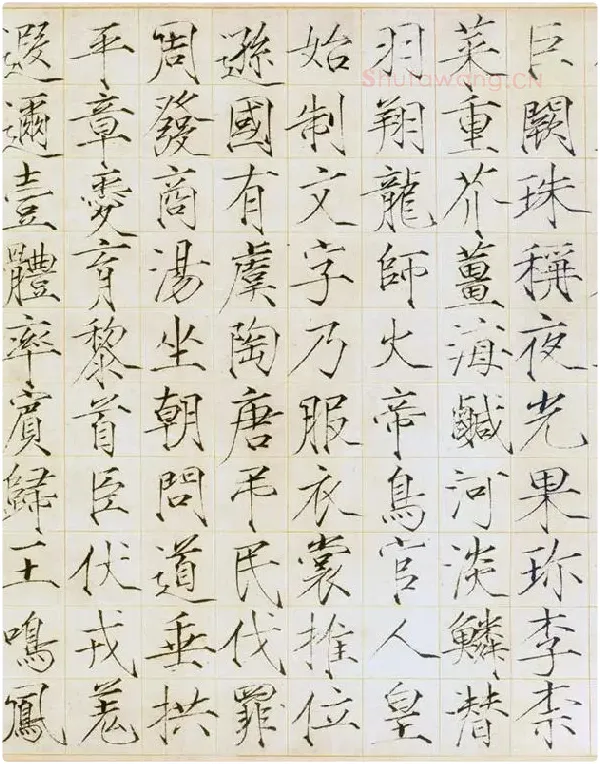 巨闕珠稱夜光果珎李柰
菜重芥薑海鹹河淡鱗潛
羽翔龍師火帝鳥官人皇
始制文字乃服衣裳推位
遜國有虞陶唐弔民伐罪
周發商湯坐朝問道垂拱
平章愛育黎首臣伏戎羌
遐邇壹體率賓歸王鳴鳳
Shufawang.CN